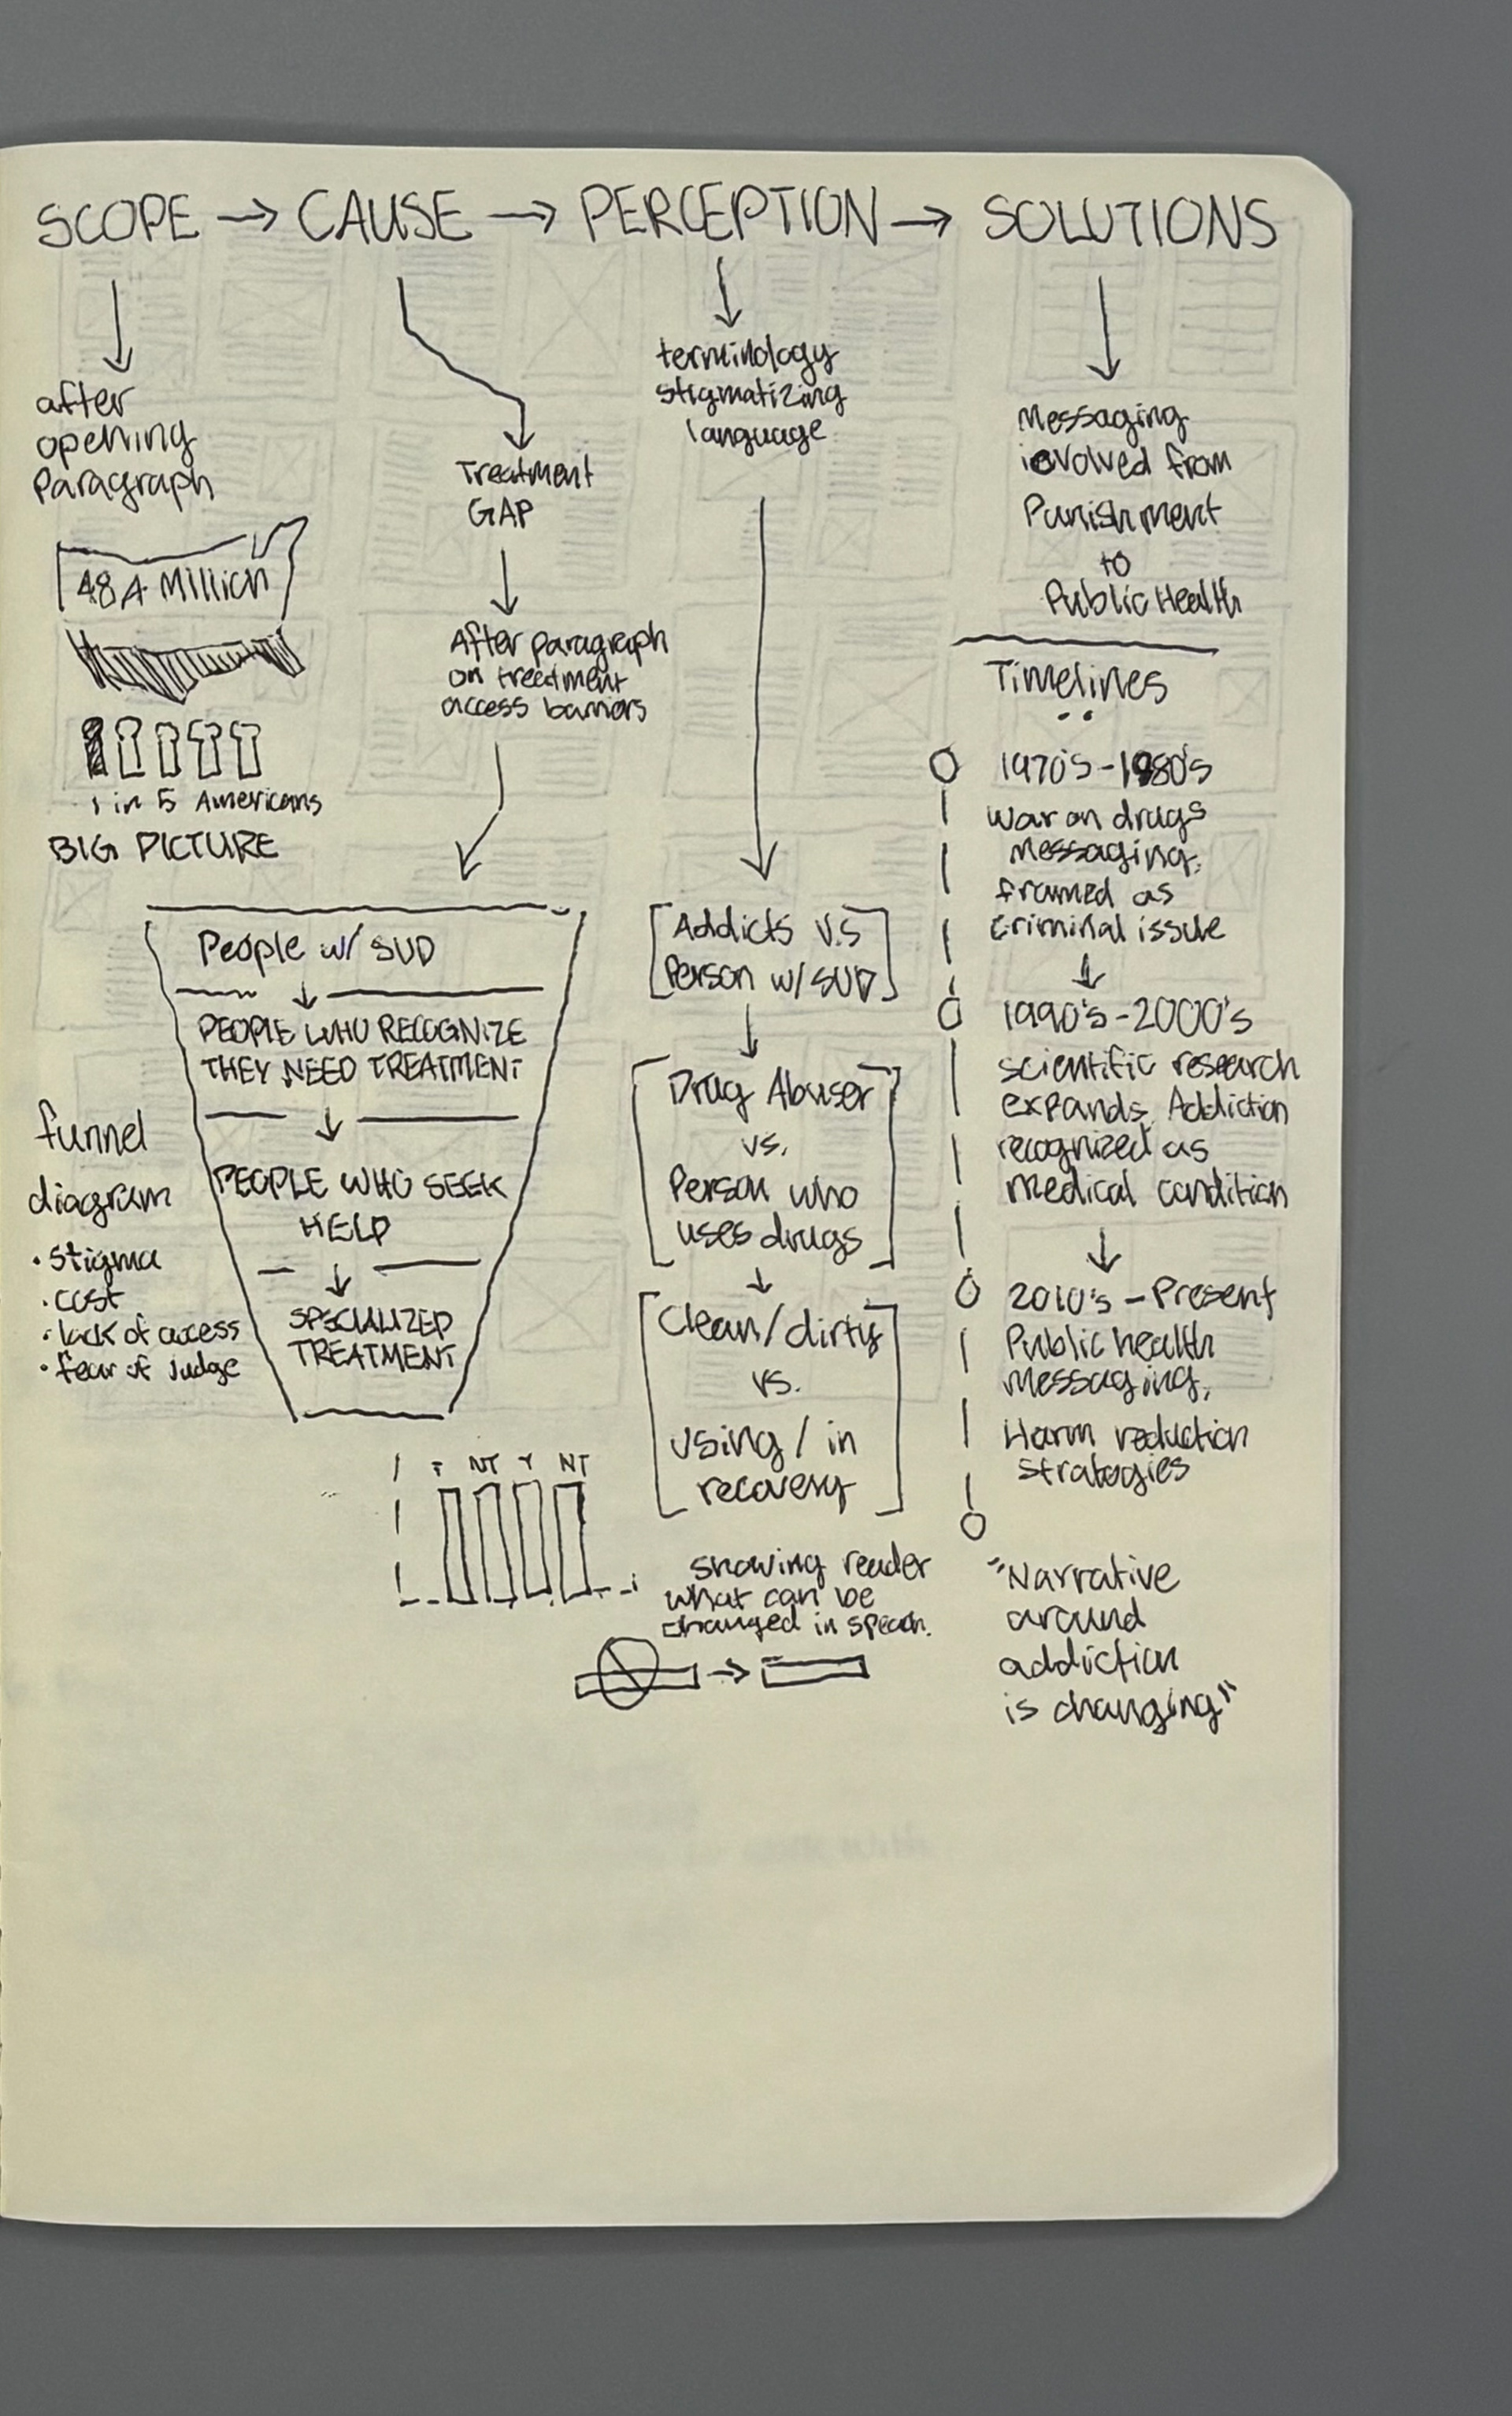 SCOPE → CAUSE → PERCEPTION → SOLUTIONS
after
opening
Paragraph
48.4 Million
1 in 5 Americans
BIG PICTURE
Treatment
GAP
After paragraph
on treatment
access barriers
People w/ SUD
PEOPLE WHO RECOGNIZE
THEY NEED TREATMENT
PEOPLE WHO SEEK
HELP
SPECIALIZED
TREATMENT
funnel
diagram
• Stigma
• cost
• lack of access
• fear of judge
T NT T NT
terminology
stigmatizing
language
Addicts v.s
Person w/ SUD
Drug Abuser
vs.
Person who
uses drugs
Clean/dirty
vs.
using / in
recovery
showing reader
what can be
changed in speech.
Messaging
evolved from
Punishment
to
Public Health
Timelines
1970's - 1980's
War on drugs
messaging,
framed as
criminal issue
1990's - 2000's
scientific research
expands. Addiction
recognized as
medical condition
2010's - Present
Public health
messaging,
Harm reduction
strategies
"Narrative
around
addiction
is changing"